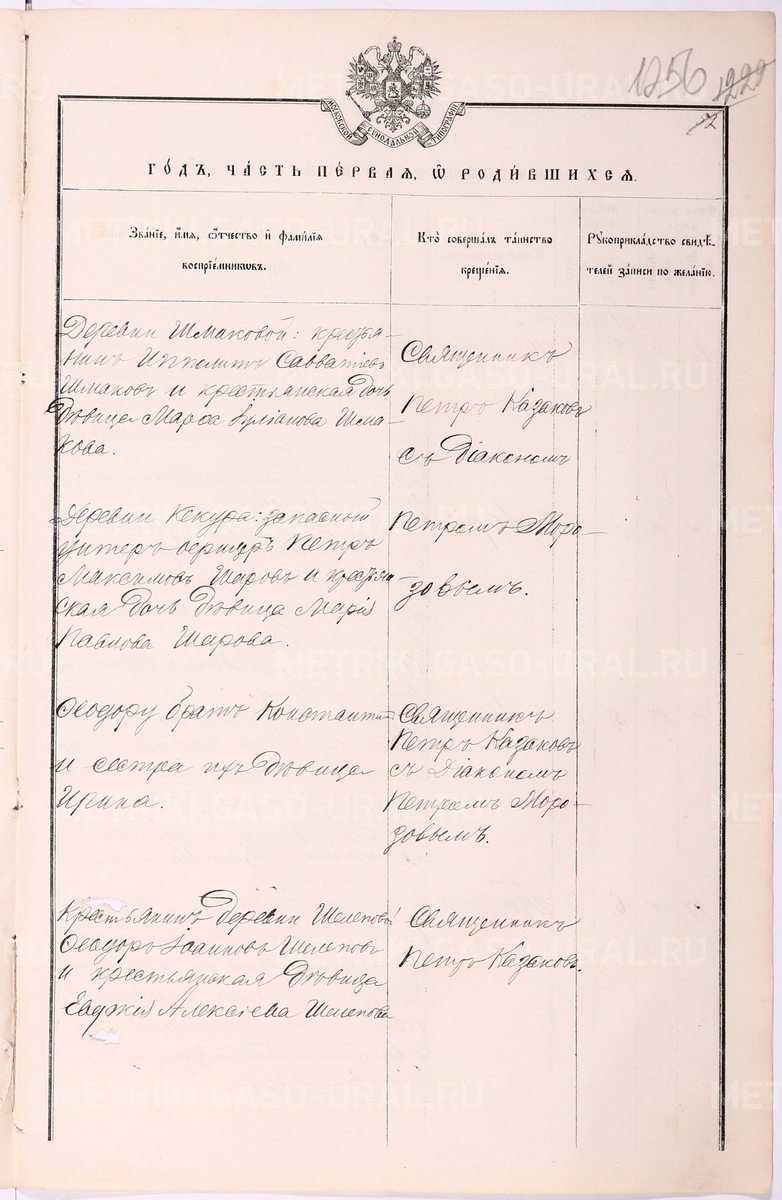 1256 1222
МОСКОВСКОЙ СѴНОДАЛЬНОЙ ТИПОГРАФІИ
ГО́ДЪ, ЧА́СТЬ ПЕ́РВАЯ, Ѽ РОДИ́ВШИХСЯ.
Зва́нїе, и҆́мя, ѻ҆́тчество и҆ фами́лїя
воспрїе́мникѡвъ.
Кто̀ соверша́лъ та́инство
креще́нїя.
Рꙋкоприкла́дство свидѣ́-
телей за́писи по жела́нїю.
Деревни Шмаковой: крестья-
нинъ Ипполитъ Савватіевъ
Шмаковъ и крестьянская дочь
Дѣвица Марѳа Іуліанова Шма-
кова.
Священникъ
Петръ Казаковъ
съ Діакономъ
Петромъ Моро-
зовымъ.
Деревни Кекура: запасной
унтеръ офицеръ Петръ
Максимовъ Шаровъ и крестьян
ская дочь Дѣвица Марія
Павлова Шарова.
Ѳеодору братъ Константинъ
и сестра ихъ Дѣвица
Ирина.
Священникъ
Петръ Казаковъ
съ Діакономъ
Петромъ Моро-
зовымъ.
Крестьянинъ Деревни Шелеповой
Ѳеодоръ Іоанновъ Шелеповъ
и крестьянская Дѣвица
Евдокія Алексіева Шелепова
Священникъ
Петръ Казаковъ.
METRIKI.GASO-URAL.RU